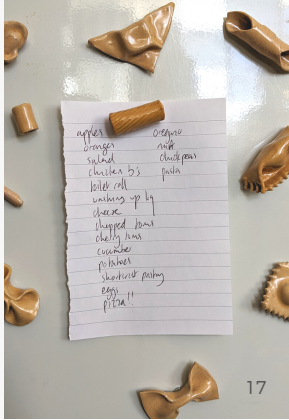 apples
oranges
salad
chicken b's
toilet roll
washing up liq
cheese
chopped toms
cherry toms
cucumber
potatoes
shortcrust pastry
eggs
pizza!!
oregano
milk
chickpeas
pasta
17